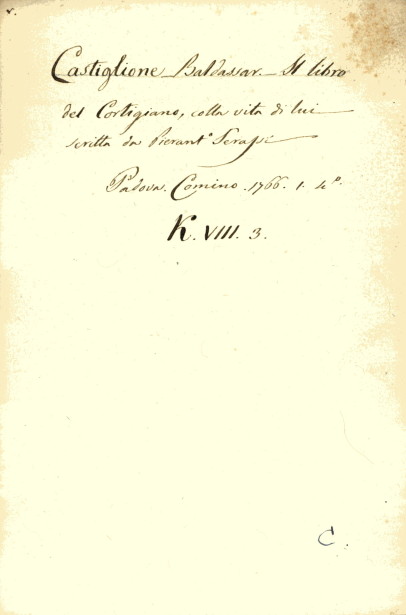 v.
Castiglione Baldassar. Il libro
del Cortigiano, colla vita di lui
scritta da Pierant.º Serassi
Padova. Comino. 1766. 1. 4º.
K. VIII. 3.
C.